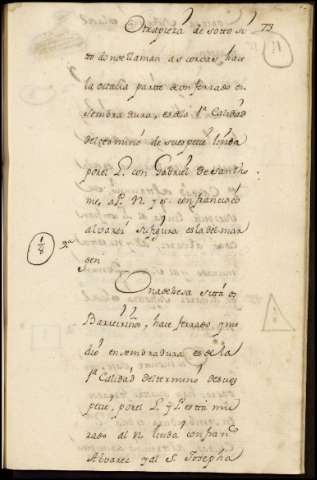 Otra pieza de soto si 73
to do nos llaman as corvas, hace
la octava parte de un ferrado en
sembradura, es de la 1ª Calidad
del termino de su especie linda
por el L. con Gabriel de Santho
me, al P. N. y S. con francisco
alvarez su figura es la del mar
1/8 2ª
gen
Una deesa sita en
Barreriño, hace ferrado, y me
dio en sembradura es de la
1ª Calidad del termino de su es
pecie, por el L. y P. esta mu
rado al N. linda con fran.
Alvarez y al S. Josepha